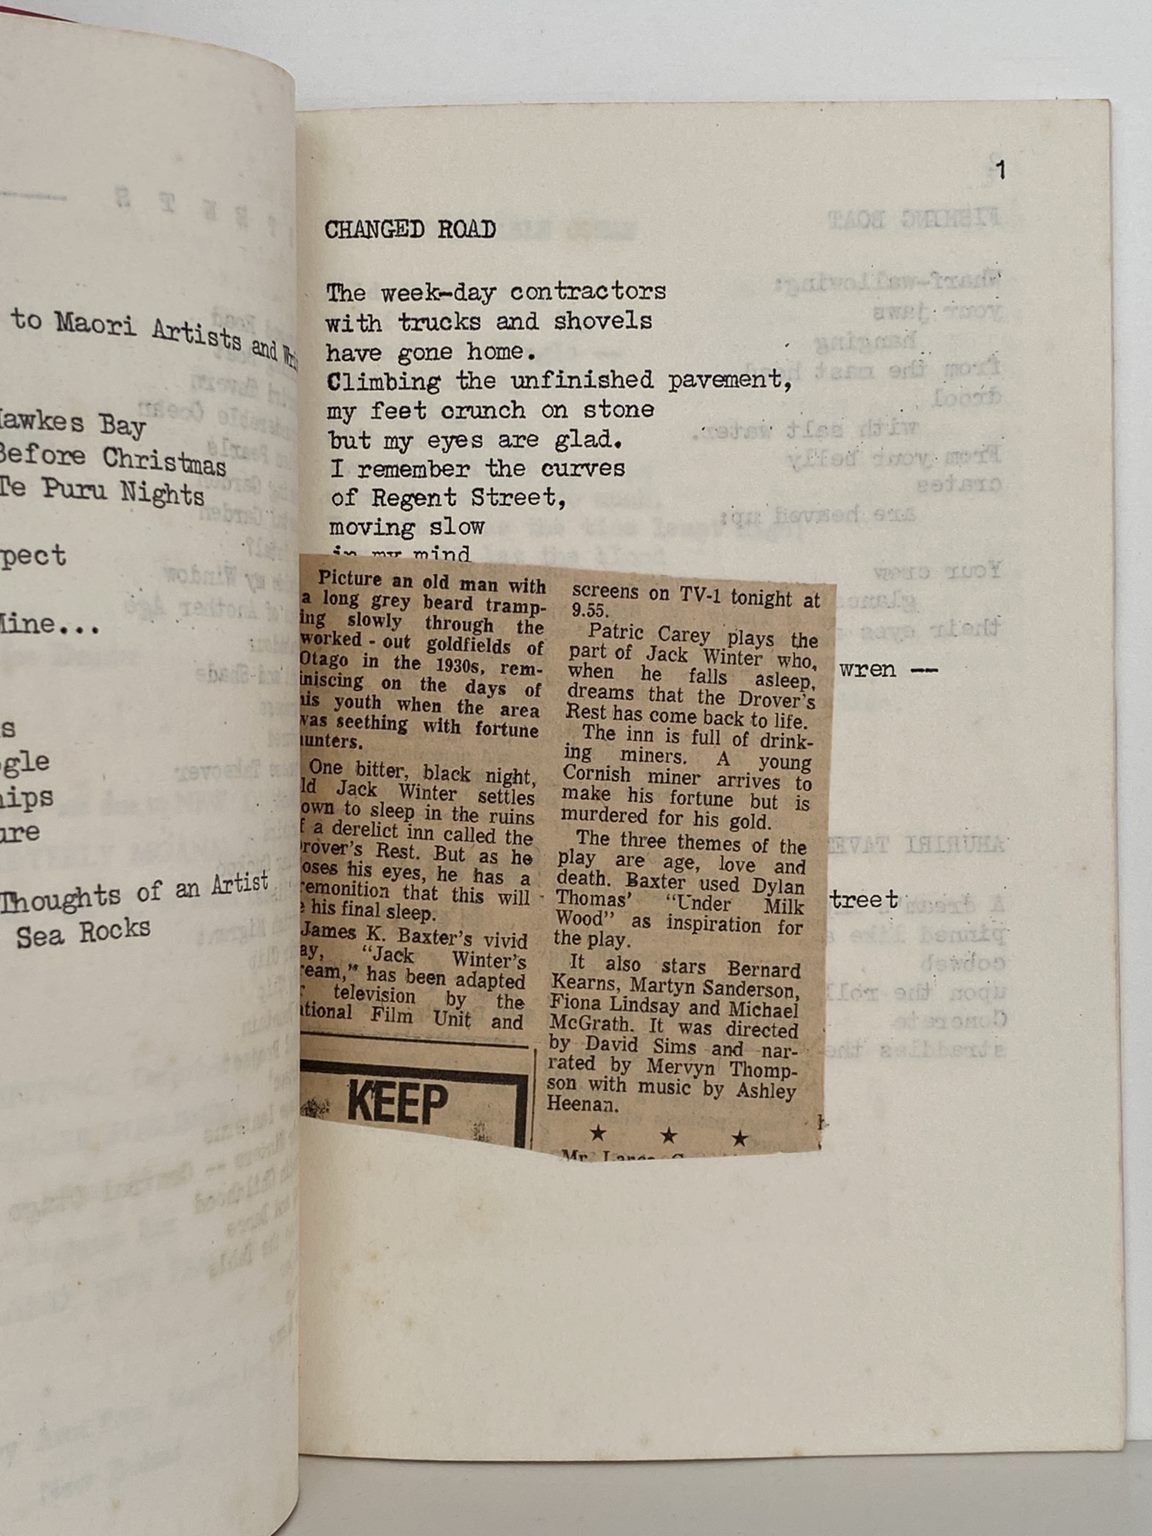 to Maori Artists and
Hawkes Bay
Before Christmas
Te Puru Nights
Mine...
Thoughts of an Artist
Sea Rocks
1
CHANGED ROAD
The week-day contractors
with trucks and shovels
have gone home.
Climbing the unfinished pavement,
my feet crunch on stone
but my eyes are glad.
I remember the curves
of Regent Street,
moving slow
in my mind
wren --
treet
Picture an old man with
a long grey beard tramp-
ing slowly through the
worked-out goldfields of
Otago in the 1930s, rem-
iniscing on the days of
his youth when the area
was seething with fortune
hunters.
One bitter, black night,
ld Jack Winter settles
own to sleep in the ruins
f a derelict inn called the
rover's Rest. But as he
oses his eyes, he has a
remonition that this will
e his final sleep.
James K. Baxter's vivid
ay, "Jack Winter's
ream," has been adapted
r television by the
ational Film Unit and
KEEP
screens on TV-1 tonight at
9.55.
Patric Carey plays the
part of Jack Winter who,
when he falls asleep,
dreams that the Drover's
Rest has come back to life.
The inn is full of drink-
ing miners. A young
Cornish miner arrives to
make his fortune but is
murdered for his gold.
The three themes of the
play are age, love and
death. Baxter used Dylan
Thomas' "Under Milk
Wood" as inspiration for
the play.
It also stars Bernard
Kearns, Martyn Sanderson,
Fiona Lindsay and Michael
McGrath. It was directed
by David Sims and nar-
rated by Mervyn Thomp-
son with music by Ashley
Heenan.
★ ★ ★